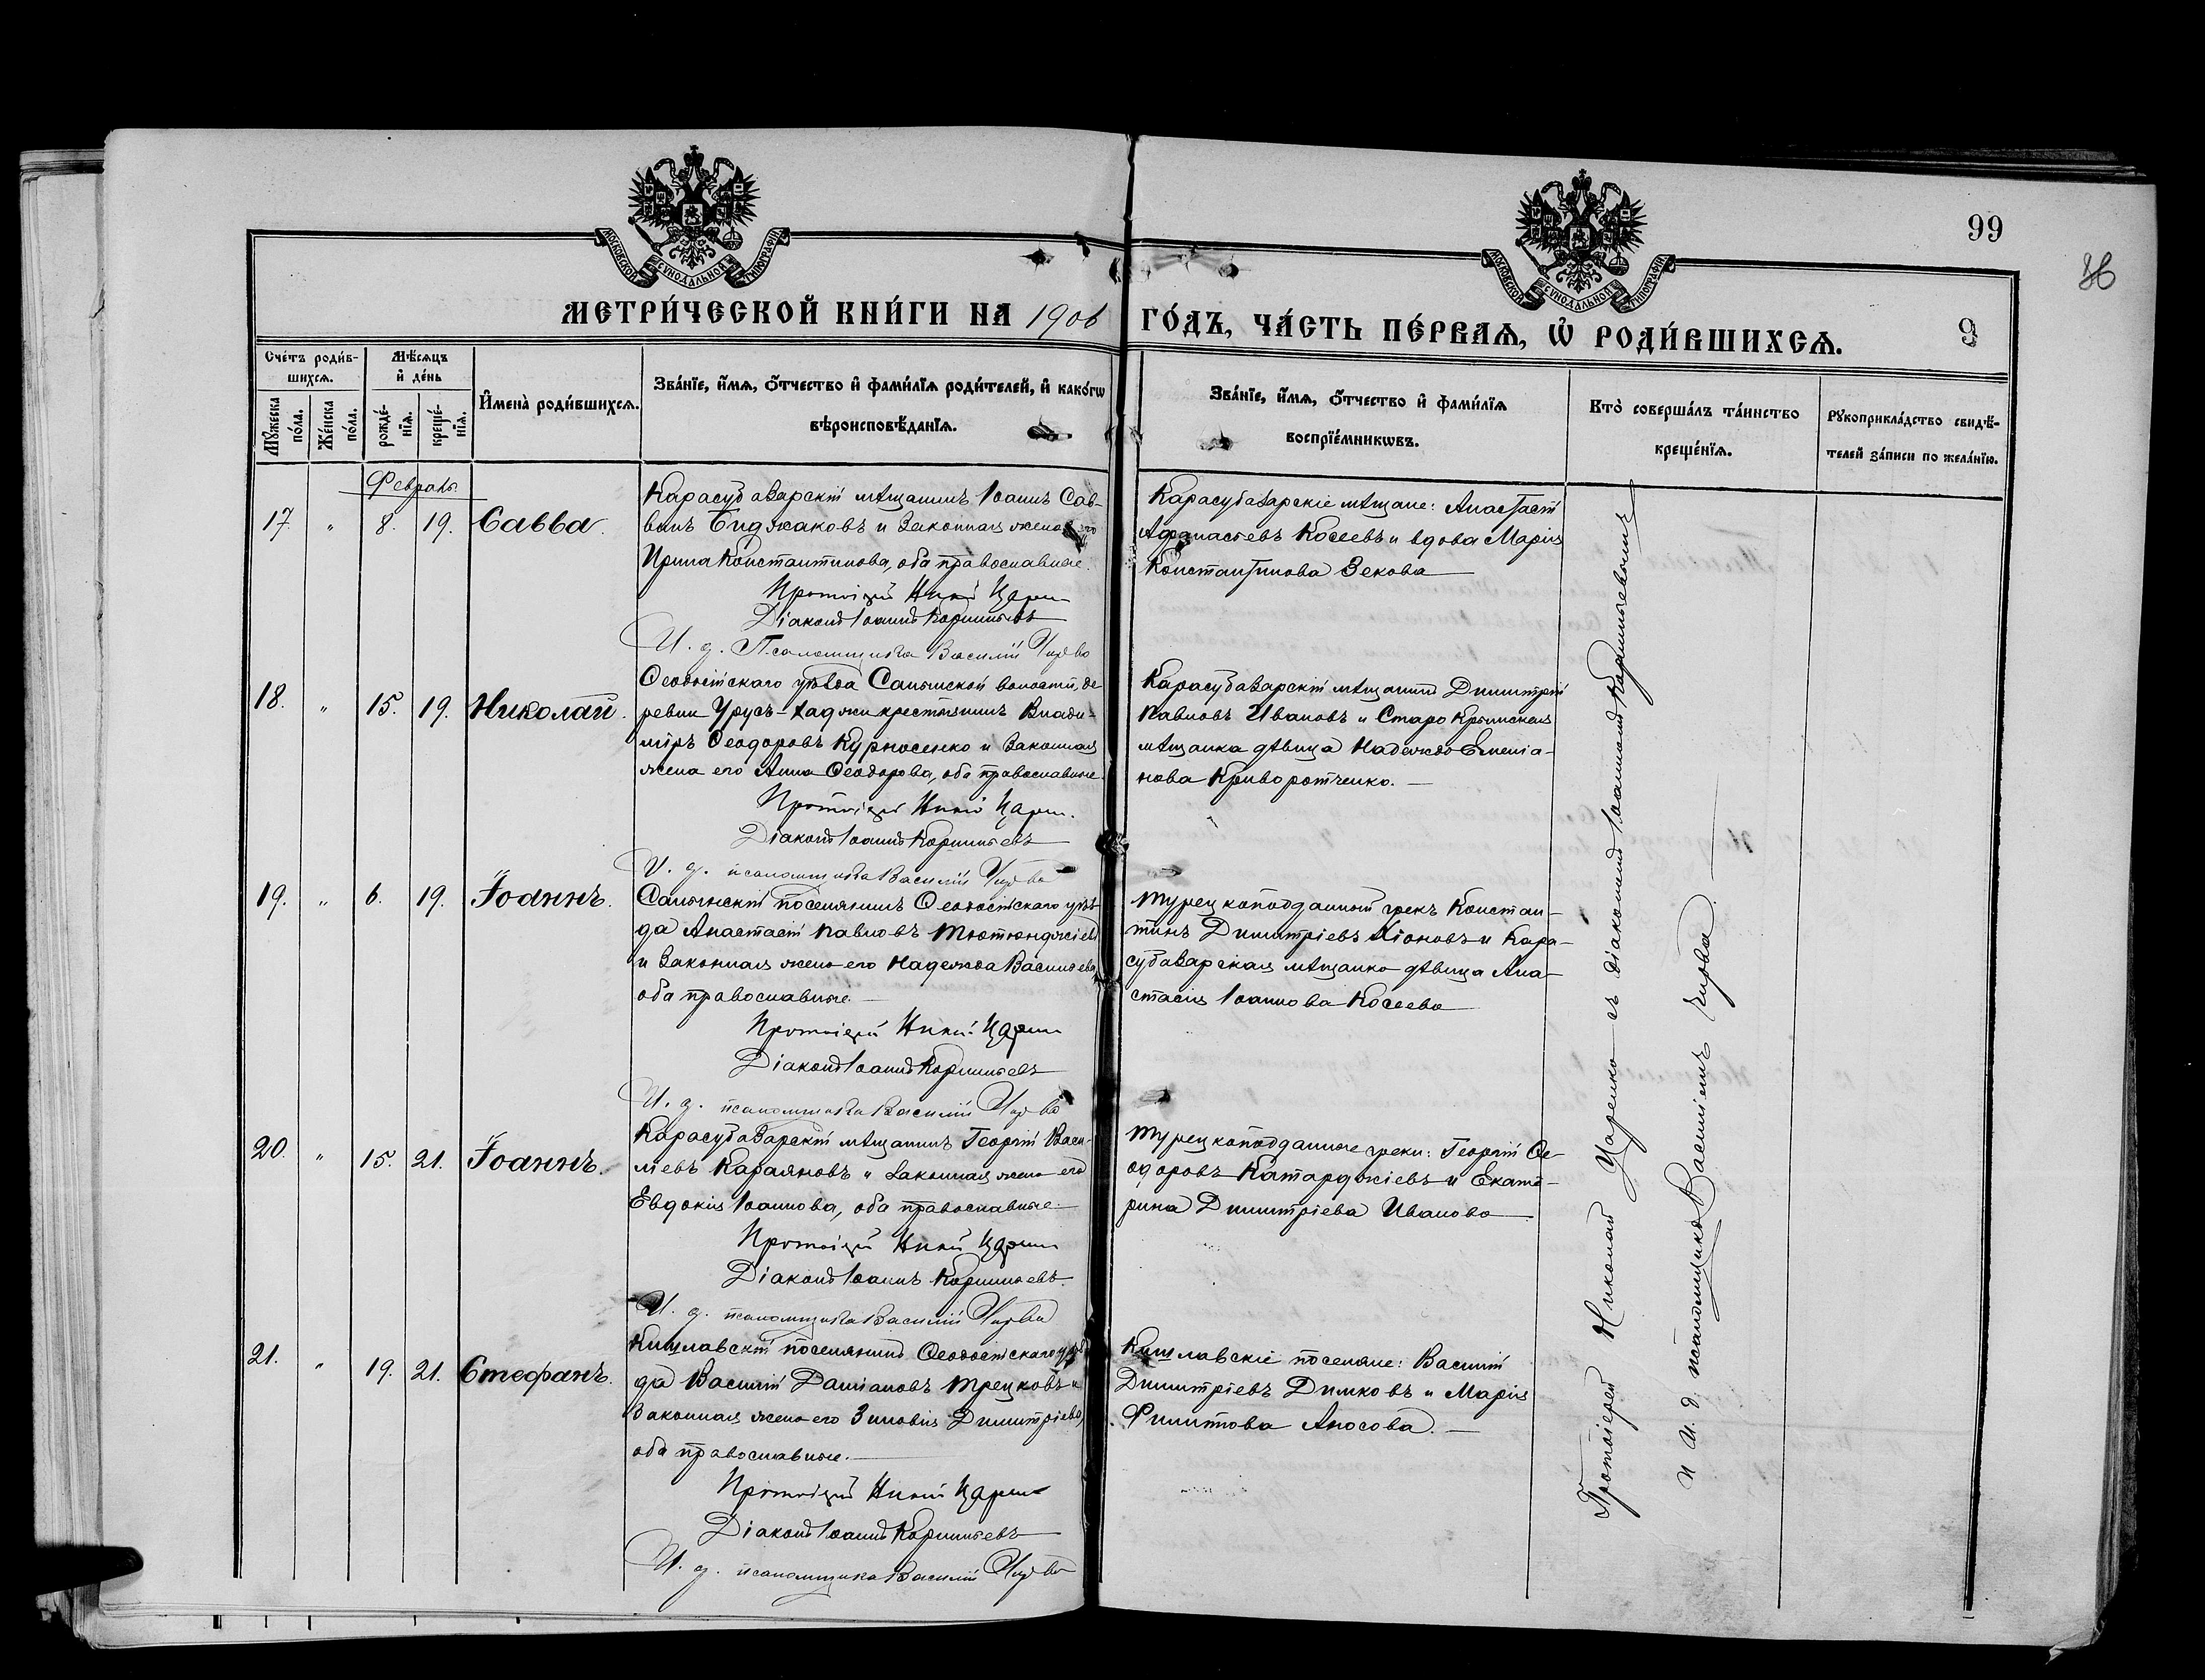 МОСКОВСКОЙ СѴНОДАЛЬНОЙ ТИПОГРАФІИ
МОСКОВСКОЙ СѴНОДАЛЬНОЙ ТИПОГРАФІИ
99
36
МЕТРИ́ЧЕСКОЙ КНИ́ГИ НА 1906
ГО́ДЪ, ЧА́СТЬ ПЕ́РВАѦ, Ѽ РОДИ́ВШИХСѦ.
9
Сче́тъ роди́в-
шихсѧ.
Мꙋжеска
по́ла.
Же́нска
по́ла.
Мѣ́сѧцъ
и҆ де́нь
рожде́-
нїѧ.
креще́-
нїѧ.
И҆мена̀ роди́вшихсѧ.
Зва́нїе, и҆́мѧ, ѻ҆́тчество и҆ фами́лїѧ роди́телей, и҆ како́гѡ
вѣроисповѣ́данїѧ.
Зва́нїе, и҆́мѧ, ѻ҆́тчество и҆ фами́лїѧ
воспрїе́мникѡвъ.
Кто̀ соверша́лъ та́инство
креще́нїѧ.
Рꙋкоприкла́дство свидѣ́-
телей за́писи по жела́нїю.
Февраль.
17. " 8. 19. Савва.
Карасубазарскій мѣщанинъ Іоаннъ Сав-
винъ Биджаковъ и законная жена его
Ирина Константинова, оба православные.
Протоіерей Никол Царен
Діаконъ Іоаннъ Корнильевъ
И. д. Псаломщика Василій Чирва
Карасубазарскіе мѣщане: Анастасій
Афанасьевъ Косеевъ и вдова Марія
Константинова Зекова
18. " 15. 19. Николай.
Ѳеодосійскаго уѣзда Салынской волости, де-
ревни Урусъ-Хаджи крестьянинъ Влади-
міръ Ѳеодоровъ Курносенко и законная
жена его Анна Ѳеодорова, оба православные.
Протоіерей Никол Царен.
Діаконъ Іоаннъ Корнильевъ
И. д. псаломщика Василій Чирва
Карасубазарскій мѣщанинъ Димитрій
Павловъ Ивановъ и Старо Крымская
мѣщанка дѣвица Надежда Емелiа-
нова Криворотченко.
19. " 6. 19. Іоаннъ.
Салынскій поселянинъ Ѳеодосійскаго уѣз-
да Анастасій Павловъ Тютюнджіевъ
и законная жена его Надежда Васильева,
оба православные.
Протоіерей Никол Царен
Діаконъ Іоаннъ Корнильевъ
И. д. псаломщика Василій Чирва
Турецкоподданный грекъ Констан-
тинъ Димитріевъ Хіоновъ и Кара-
субазарская мѣщанка дѣвица Ана-
стасія Іоаннова Косеева
20. " 15. 21. Іоаннъ.
Карасубазарскій мѣщанинъ Георгій Васи-
ліевъ Караяновъ и законная жена его
Евдокія Іоаннова, оба православные.
Протоіерей Никол Царен
Діаконъ Іоаннъ Корнильевъ.
И. д. псаломщика Василій Чирва
Турецкоподданные греки: Георгій Ѳе-
одоровъ Катарджіевъ и Екате-
рина Димитріева Иванова
21. " 19. 21. Стефанъ.
Кишлавскій поселянинъ Ѳеодосійскаго уѣз-
да Василій Даміановъ Трецковъ и
законная жена его Зиновія Димитріева,
оба православные.
Протоіерей Никол Царен
Діаконъ Іоаннъ Корнильевъ
И. д. псаломщика Василій Чирва
Кишлавскіе поселяне: Василій
Димитріевъ Димковъ и Марія
Филиппова Аносова.
Протоіерей Николай Царенко съ діакономъ Іоанномъ Корнильевымъ
и И. д. псаломщика Василіемъ Чирва.